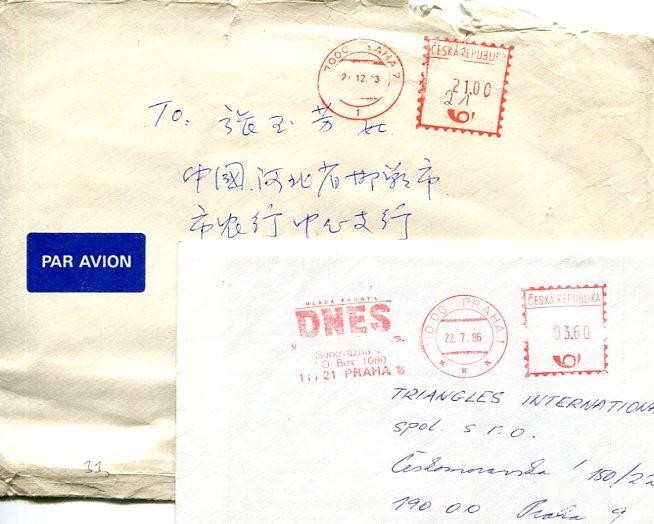 7000 PRAHA 7
12.
1
ČESKÁ REPUBLIKA
21.00
21
To: 张玉芳
中国河北省邯郸市
市农行中心支行
PAR AVION
MLADÁ FRONTA
DNES
PO Box 1080
111 21 PRAHA
PRAHA 1
22.7.96
ČESKÁ REPUBLIKA
03.60
TRIANGLES INTERNATIONA
spol. s r.o.
Českomoravská 150/22
190 00 Praha 9
33